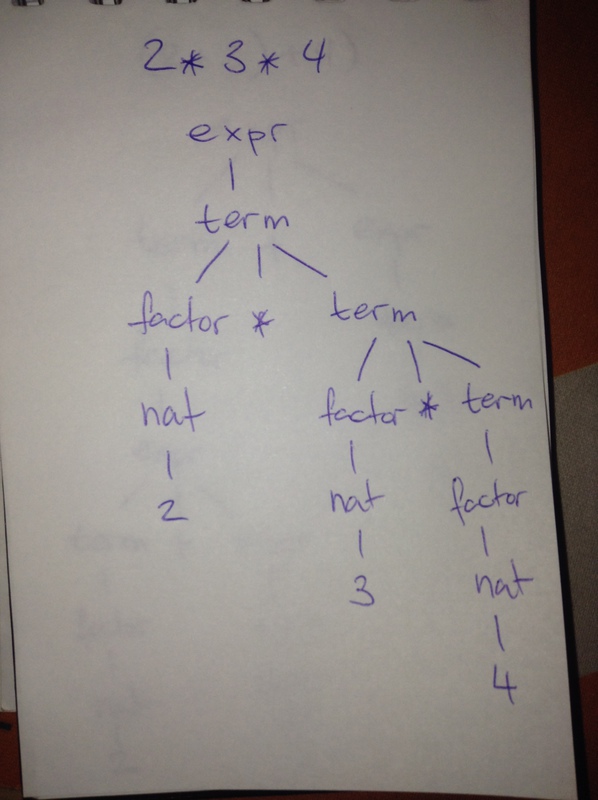 2 * 3 * 4
expr
term
factor * term
nat factor * term
2 nat factor
3 nat
4